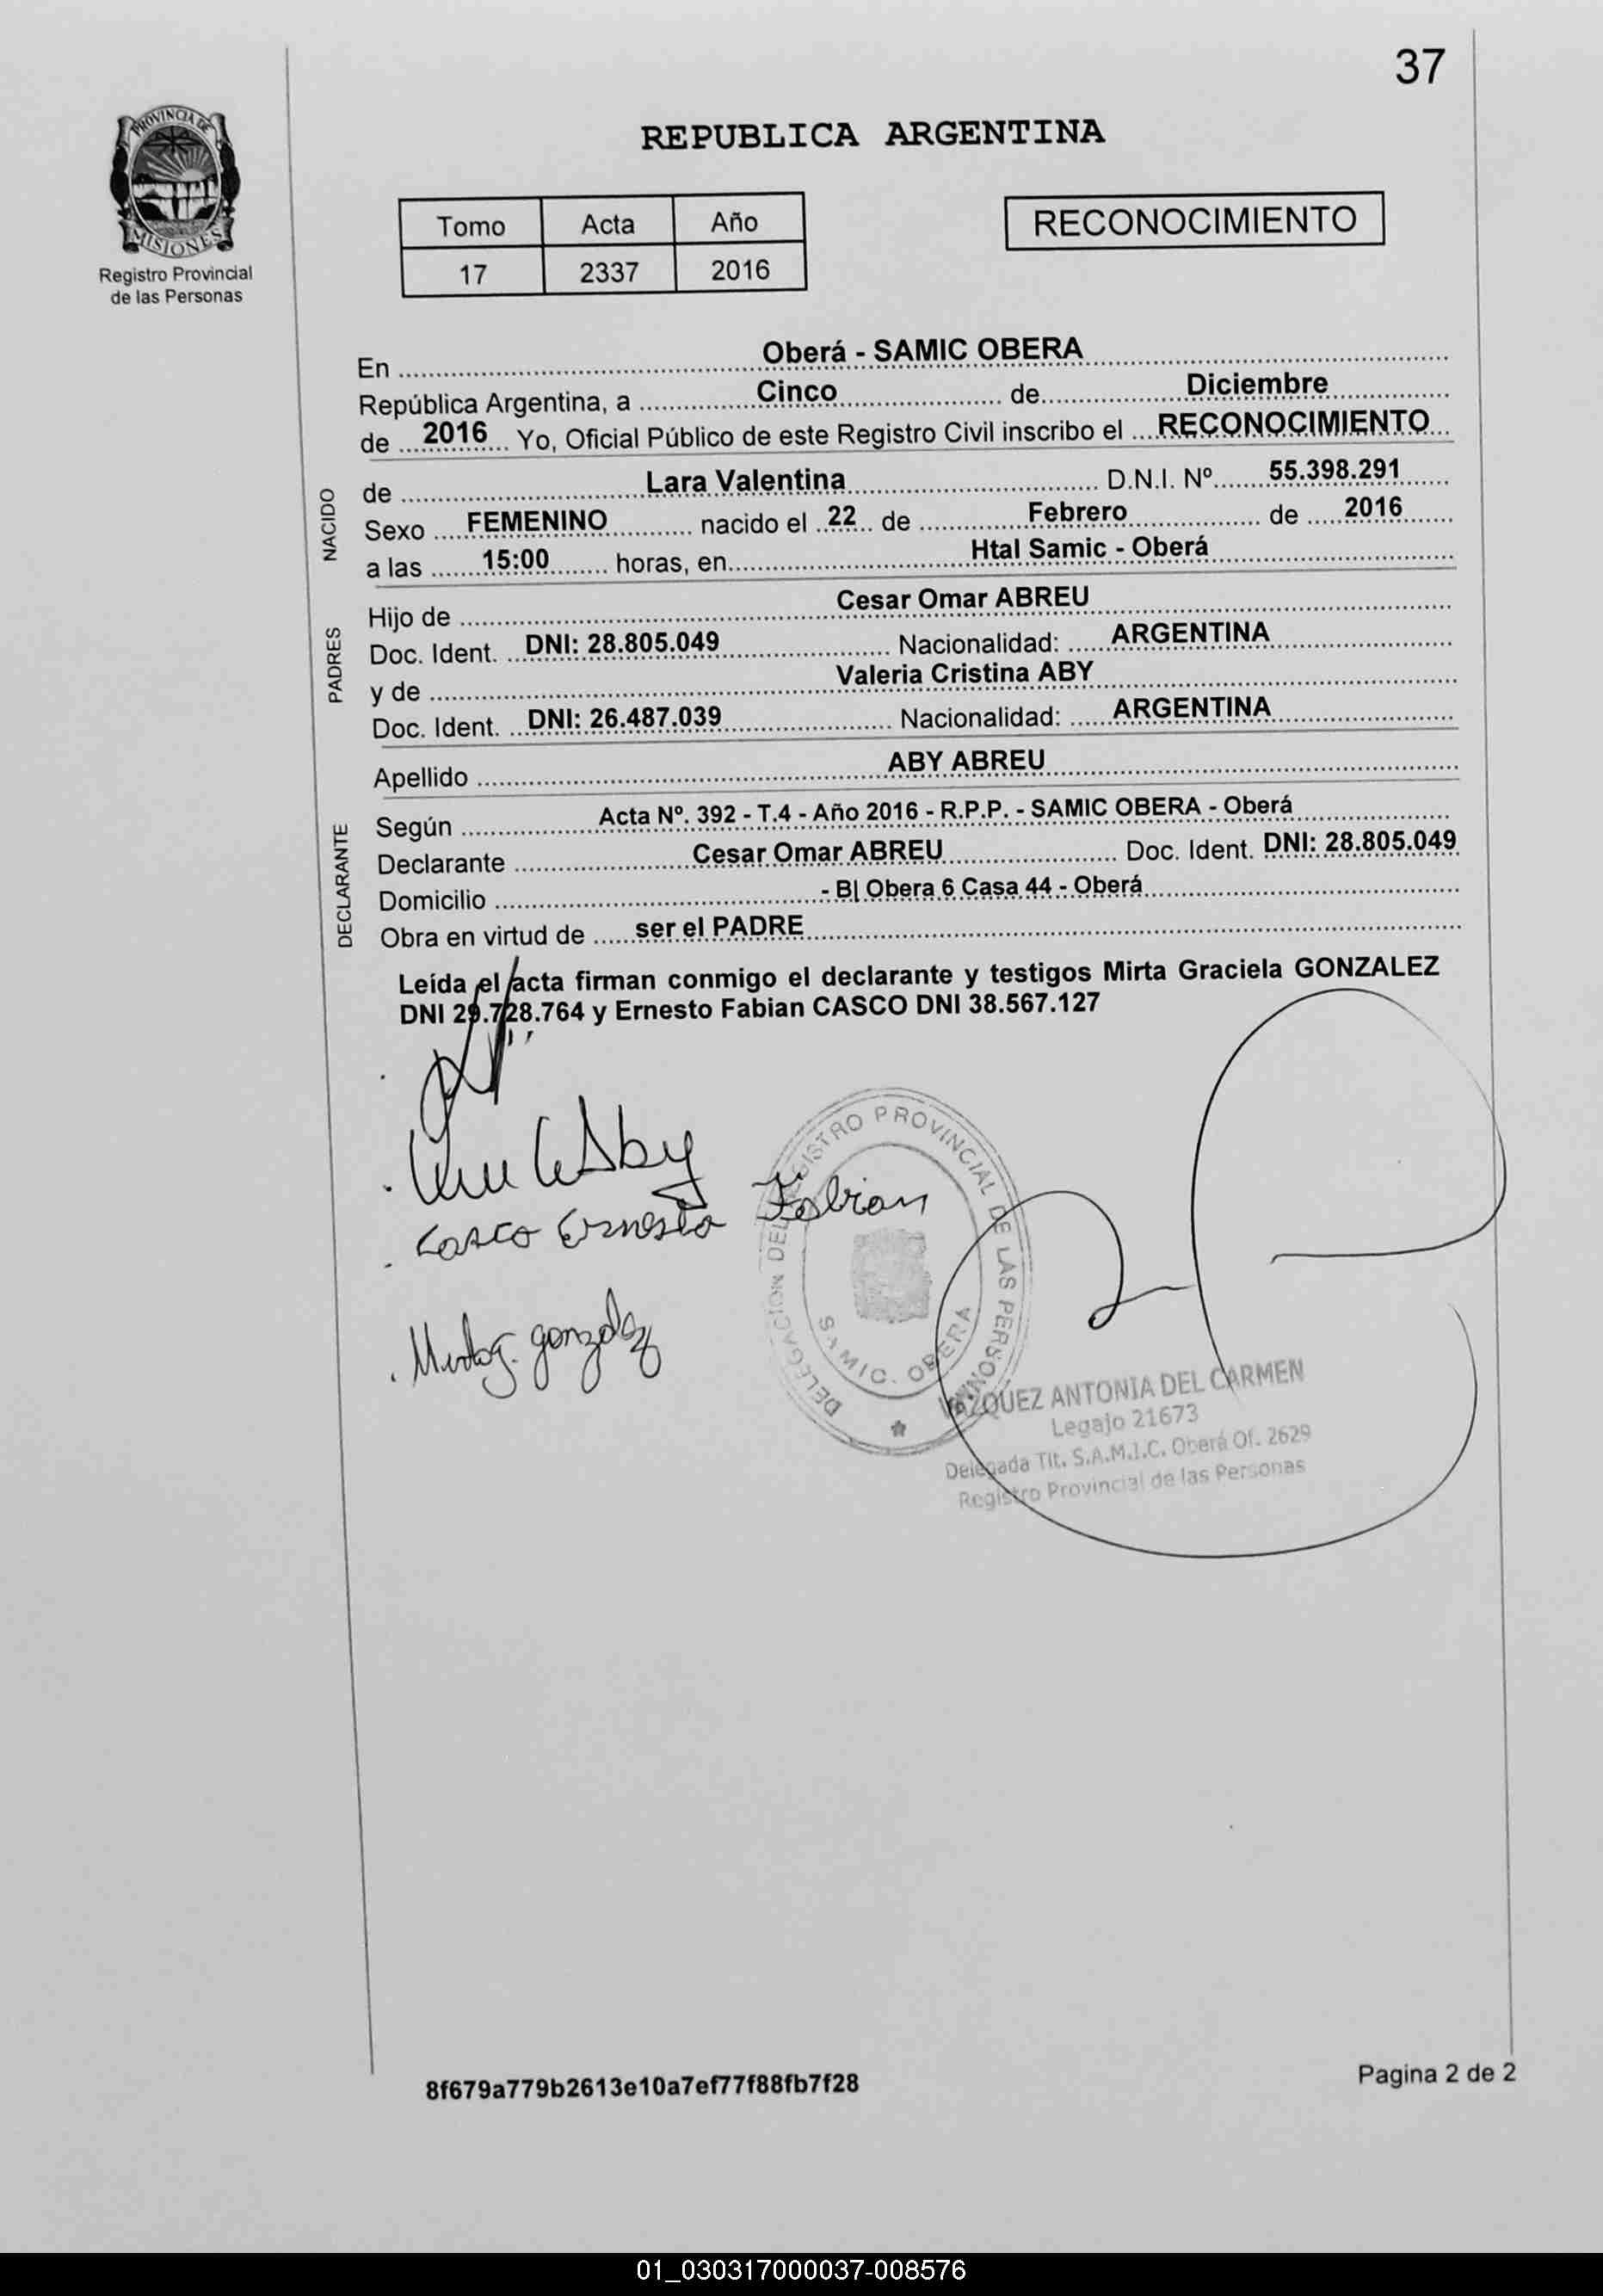 37
PROVINCIA DE
MISIONES
Registro Provincial
de las Personas
REPUBLICA ARGENTINA
Tomo Acta Año
17 2337 2016
RECONOCIMIENTO
En Oberá - SAMIC OBERA
República Argentina, a Cinco de Diciembre
de 2016 Yo, Oficial Público de este Registro Civil inscribo el RECONOCIMIENTO
NACIDO
de Lara Valentina D.N.I. Nº 55.398.291
Sexo FEMENINO nacido el 22 de Febrero de 2016
a las 15:00 horas, en Htal Samic - Oberá
PADRES
Hijo de Cesar Omar ABREU
Doc. Ident. DNI: 28.805.049 Nacionalidad: ARGENTINA
y de Valeria Cristina ABY
Doc. Ident. DNI: 26.487.039 Nacionalidad: ARGENTINA
Apellido ABY ABREU
DECLARANTE
Según Acta Nº. 392 - T.4 - Año 2016 - R.P.P. - SAMIC OBERA - Oberá
Declarante Cesar Omar ABREU Doc. Ident. DNI: 28.805.049
Domicilio - B| Obera 6 Casa 44 - Oberá
Obra en virtud de ser el PADRE
Leída el acta firman conmigo el declarante y testigos Mirta Graciela GONZALEZ
DNI 29.728.764 y Ernesto Fabian CASCO DNI 38.567.127
Aby
Casco Ernesto Fabian
Mirta G. gonzalez
DELEGACION DEL REGISTRO PROVINCIAL DE LAS PERSONAS
SAMIC. OBERA
VAZQUEZ ANTONIA DEL CARMEN
Legajo 21673
Delegada Tit. S.A.M.I.C. Oberá Of. 2629
Registro Provincial de las Personas
8f679a779b2613e10a7ef77f88fb7f28
Pagina 2 de 2
01_030317000037-008576